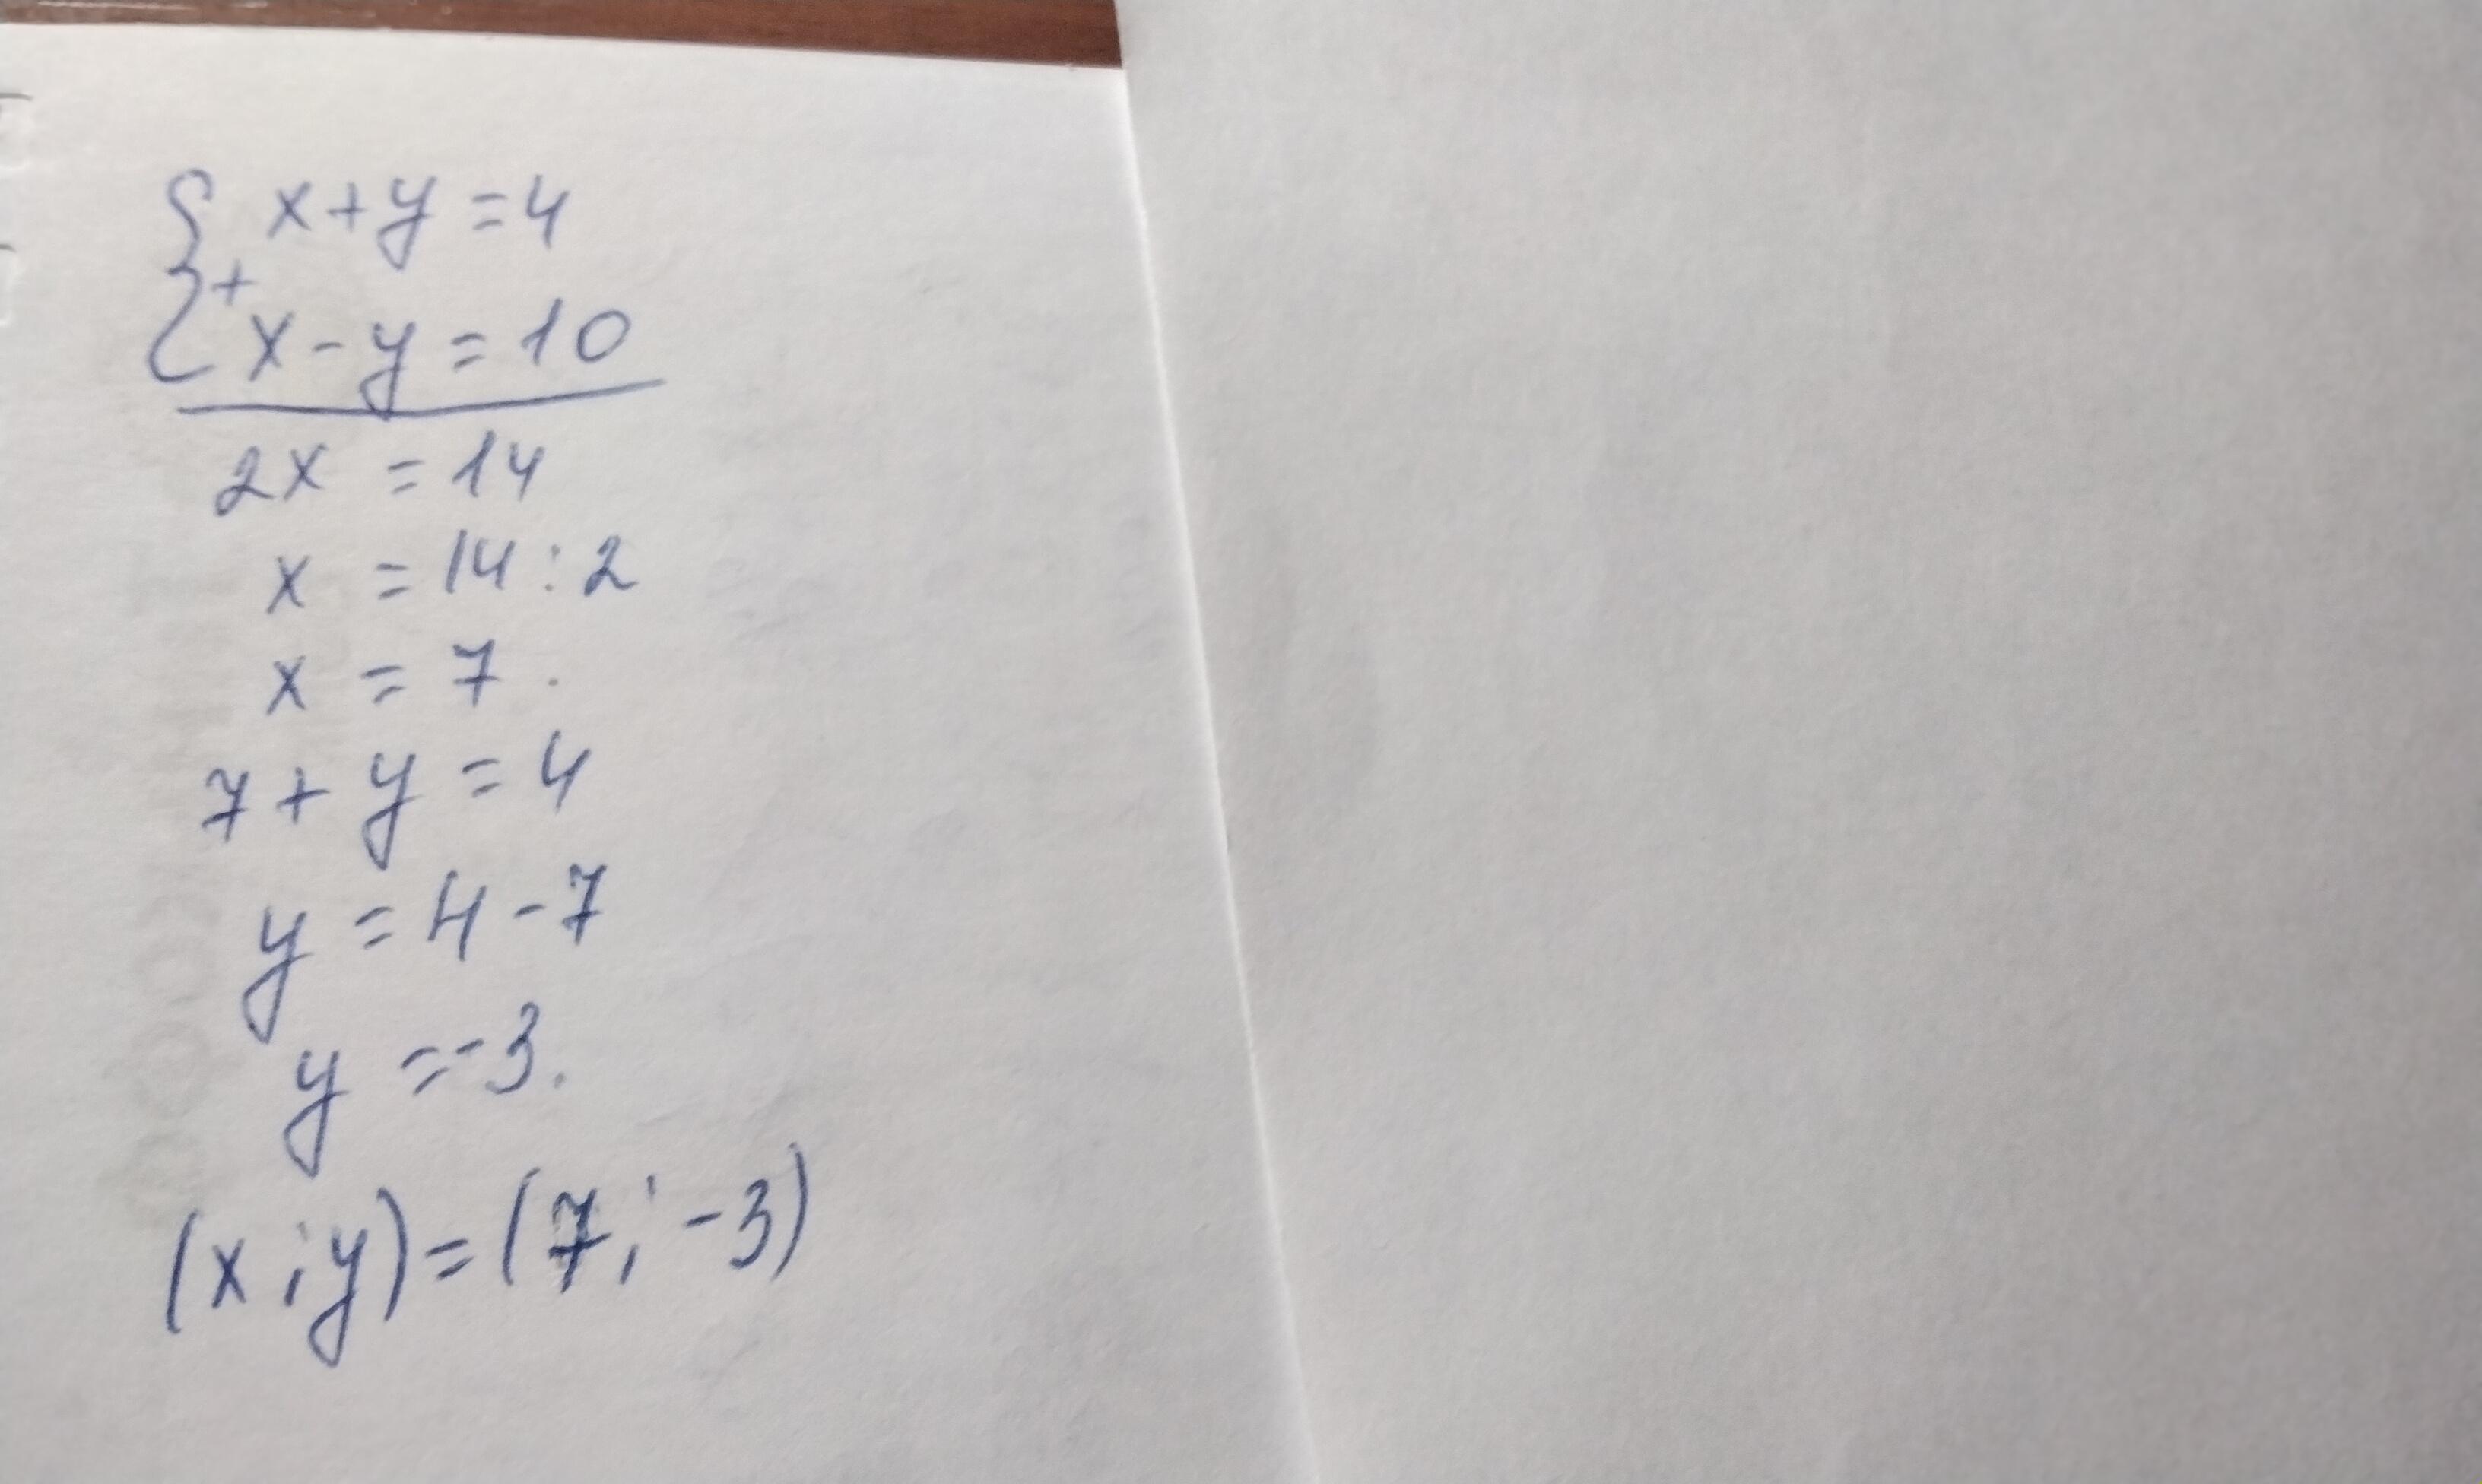 { x+y=4
+
x-y=10
2x=14
x=14:2
x=7.
7+y=4
y=4-7
y=-3.
(x;y)=(7;-3)